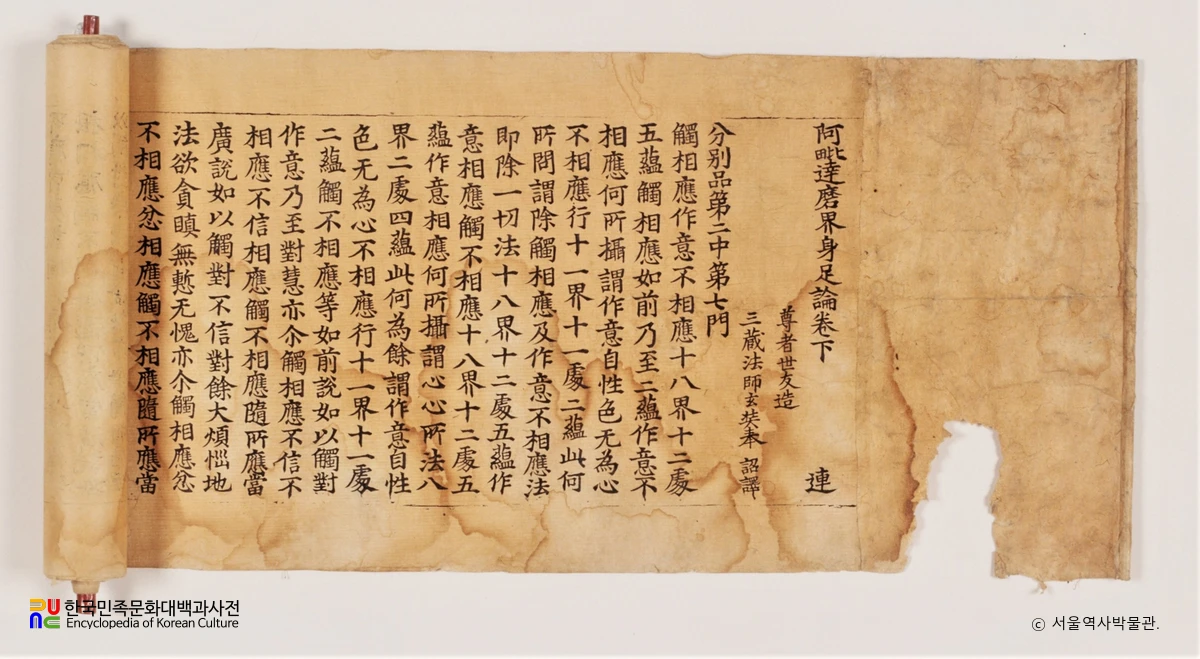 阿毗達磨界身足論卷下 連
尊者世友造
三藏法師玄奘奉 詔譯
分別品第二中第七門
觸相應作意不相應十八界十二處
五蘊觸相應如前乃至二蘊作意不
相應何所攝謂作意自性色无為心
不相應行十一界十一處二蘊此何
所問謂除觸相應及作意不相應法
即除一切法十八界十二處五蘊作
意相應觸不相應十八界十二處五
蘊作意相應何所攝謂心心所法八
界二處四蘊此何為餘謂作意自性
色无為心不相應行十一界十一處
二蘊觸不相應等如前說如以觸對
作意乃至對慧亦尒觸相應不信不
相應不信相應觸不相應隨所應當
廣說如以觸對不信對餘大煩惱地
法欲貪瞋無慙无愧亦尒觸相應忿
不相應忿相應觸不相應隨所應當
한국민족문화대백과사전
Encyclopedia of Korean Culture
ⓒ 서울역사박물관.